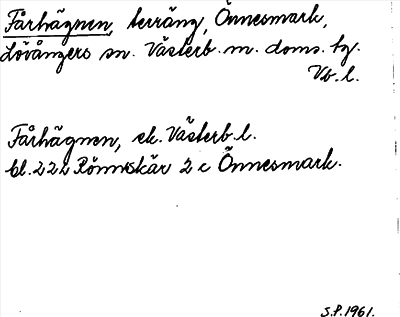 Fårhägnen, terräng, Önnesmark,
Lövångers sn. Västerb. m. doms. hg.
Vb. l.
Fårhägnen, ek. Västerb. l.
bl. 222 Rönnskär 2 c Önnesmark.
S.P. 1961.